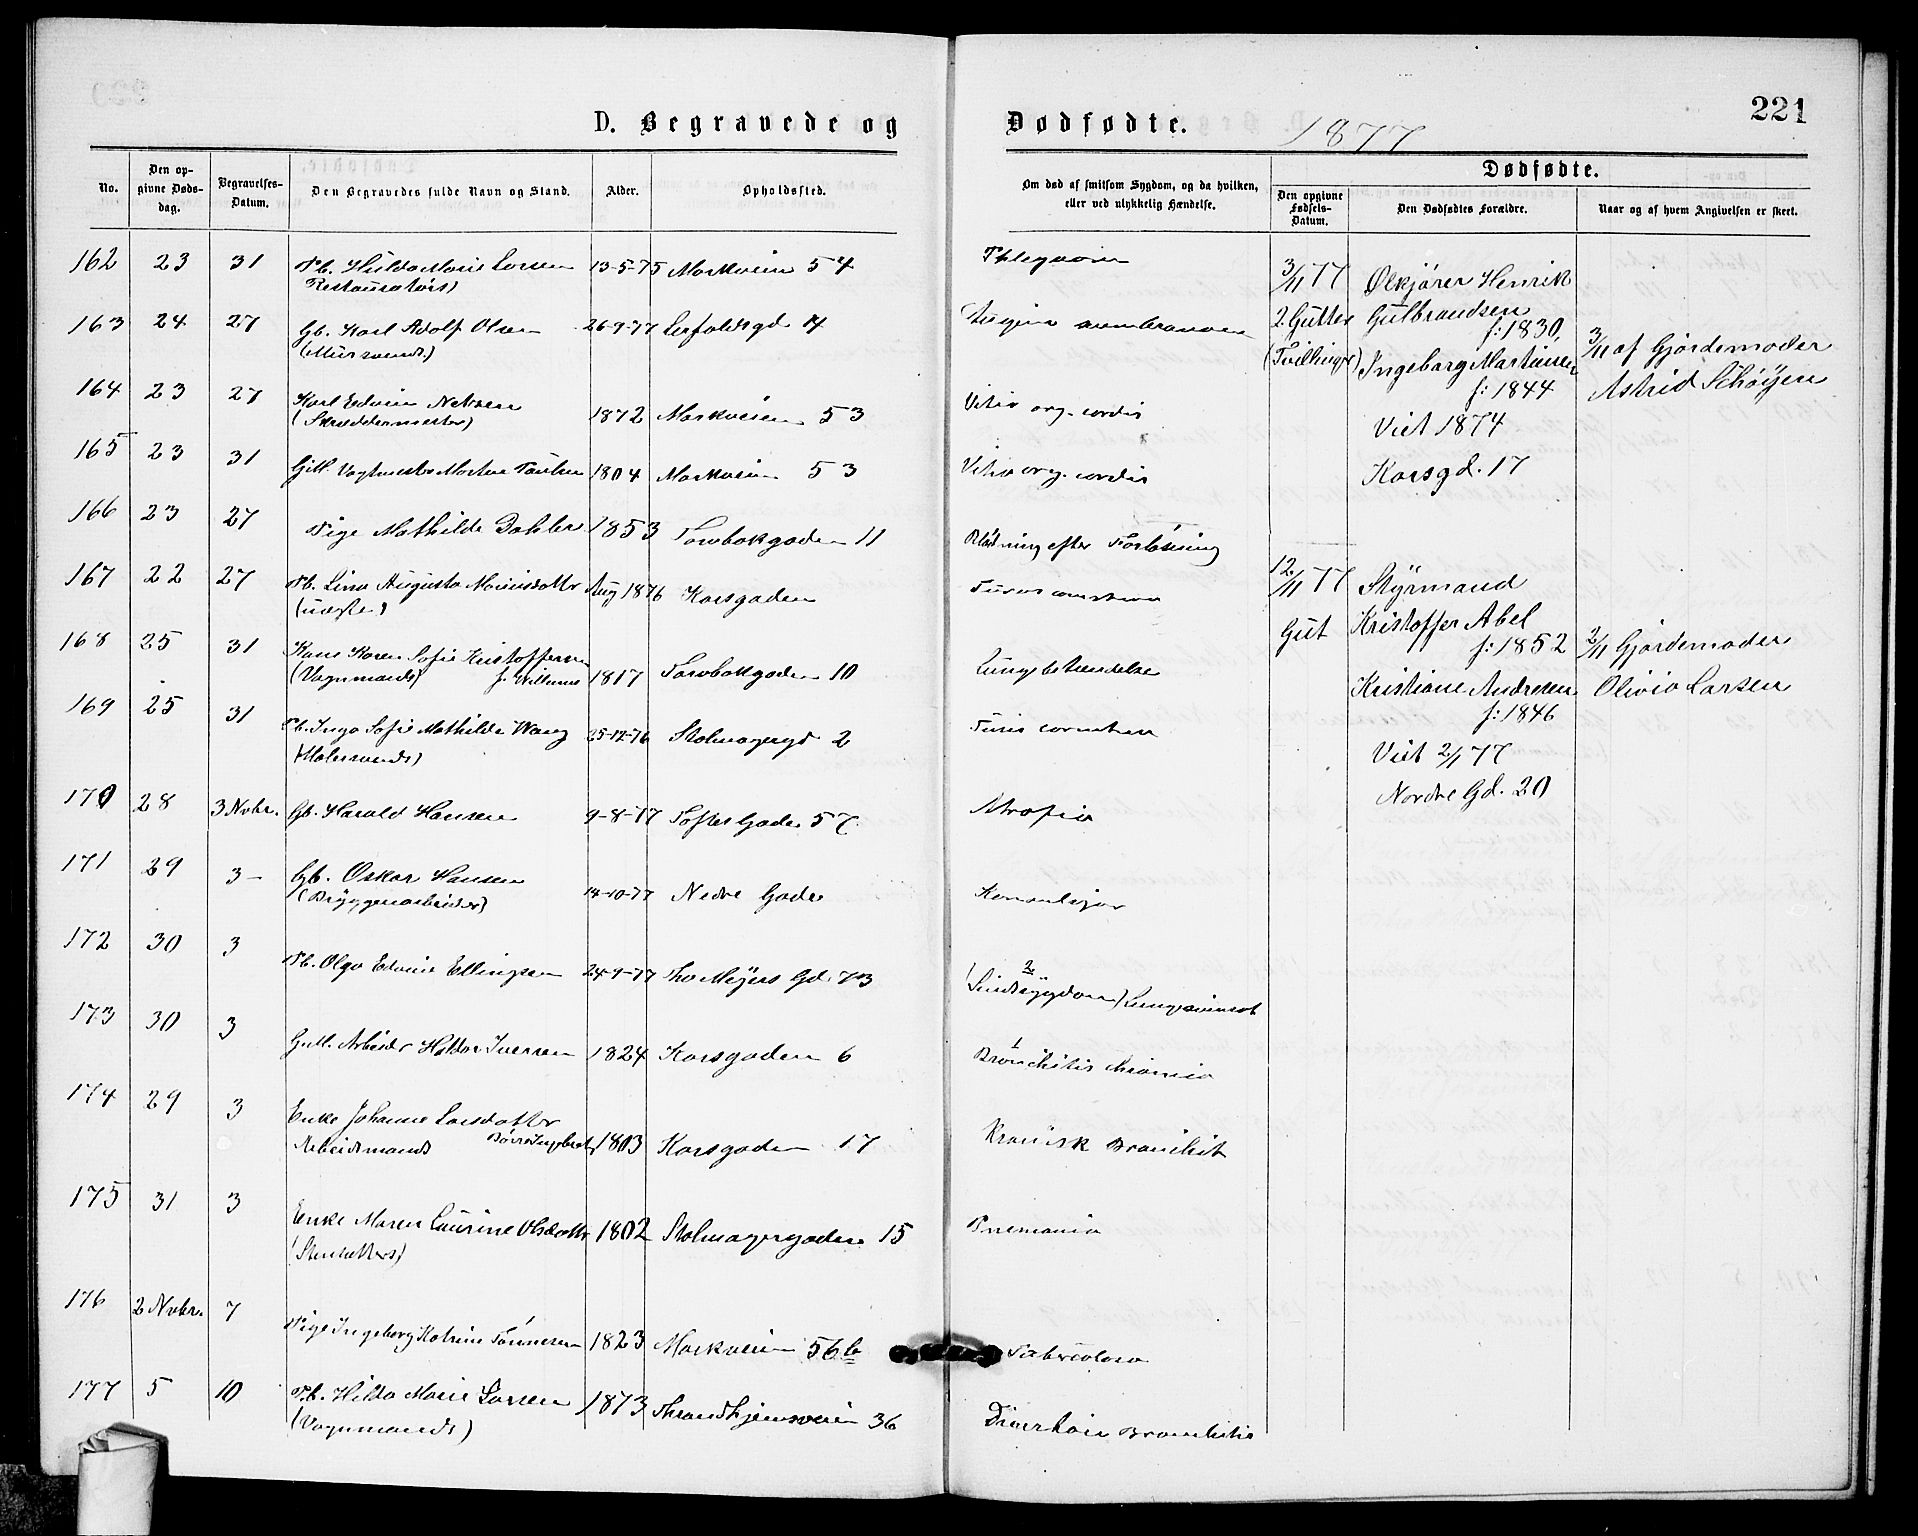 221
D. Begravede og Dødfødte.
1877
No.
Den opgivne Dødsdag.
Begravelses-Datum.
Den Begravedes fulde Navn og Stand.
Alder.
Opholdssted.
Om død af smitsom Sygdom, og da hvilken,
eller ved ulykkelig Hændelse.
Dødfødte.
Den opgivne Fødsels-Datum.
Den Dødfødtes Forældre.
Naar og af hvem Angivelsen er skeet.
162 23 31 Pb. Hulda Marie Larsen 13-5-75 Markveien 54
Restauratørs)
163 24 27 Gb. Karl Adolf Olsen 26-9-77 4
(Mursvends)
164 23 27 Karl Edvin Nelsen 1872 Markveien 53 Vitia org. cordis
(Skræddermester)
165 23 31 Gift. Vagtmester Morten Paulsen 1804 Markveien 53 Vitia org. cordis
166 23 27 Pige Mathilde Dahler 1853 Torvbakgaden 11 Blødning efter Forløsning
167 22 27 Pb. Lina Augusta Aug 1876 Korsgaden
(uægte)
168 25 31 Kone Karen Sofie Kristoffersen 1817 Torvbakgaden 10 Lungebetændelse
(Vognmands)
169 25 31 Pb. Inga Sofie Mathilde Wang 25-12-76 Stolmagergd 2
(Malersvends)
170 28 3 Novbr. Gb. Harald Hansen 9-8-77 Toftes Gade 57 Atrofia
171 29 3 - Gb. Oskar Hansen 14-10-77 Nedre Gade
(Bryggeriarbeiders)
172 30 3 Pb. Olga Edvine Ellingsen 24-9-77 Tho Meyers Gd. 73
173 30 3 Gift. Arbeider Halvor Iversen 1824 Korsgaden 6 Bronchitis chronica
174 29 3 Enke Johanne Larsdatter
Arbeidsmands 1803 Korsgaden 17 Kronisk Bronchit
175 31 3 Enke Maren Laurine Olsdatter 1802 Stolmagergaden 15 Pnemonia
176 2 Novbr. 7 Pige Ingeborg Katrine Tønnesen 1823 Markveien 56b Tuberculosa
177 5 10 Pb. Hilda Marie Larsen 1873 Throndhjemsveien 36 Bronchitis
(Vognmands)
3/11 77 Ølkjører Henrik
2 Gutter Gulbrandsen
f: 1830,
(Tvillinger) Ingeborg Martinsen
f: 1844
Viet 1874
Korsgd. 17
3/11 af Gjordemoder
Astrid Schøyen
12/11 77 Styrmand
Gut Kristoffer Abel
f: 1852
Kristiane Andresen
f: 1846
Viet 2/1 77
Nordre Gd. 20
2/11 Gjordemoder
Olivia Larsen